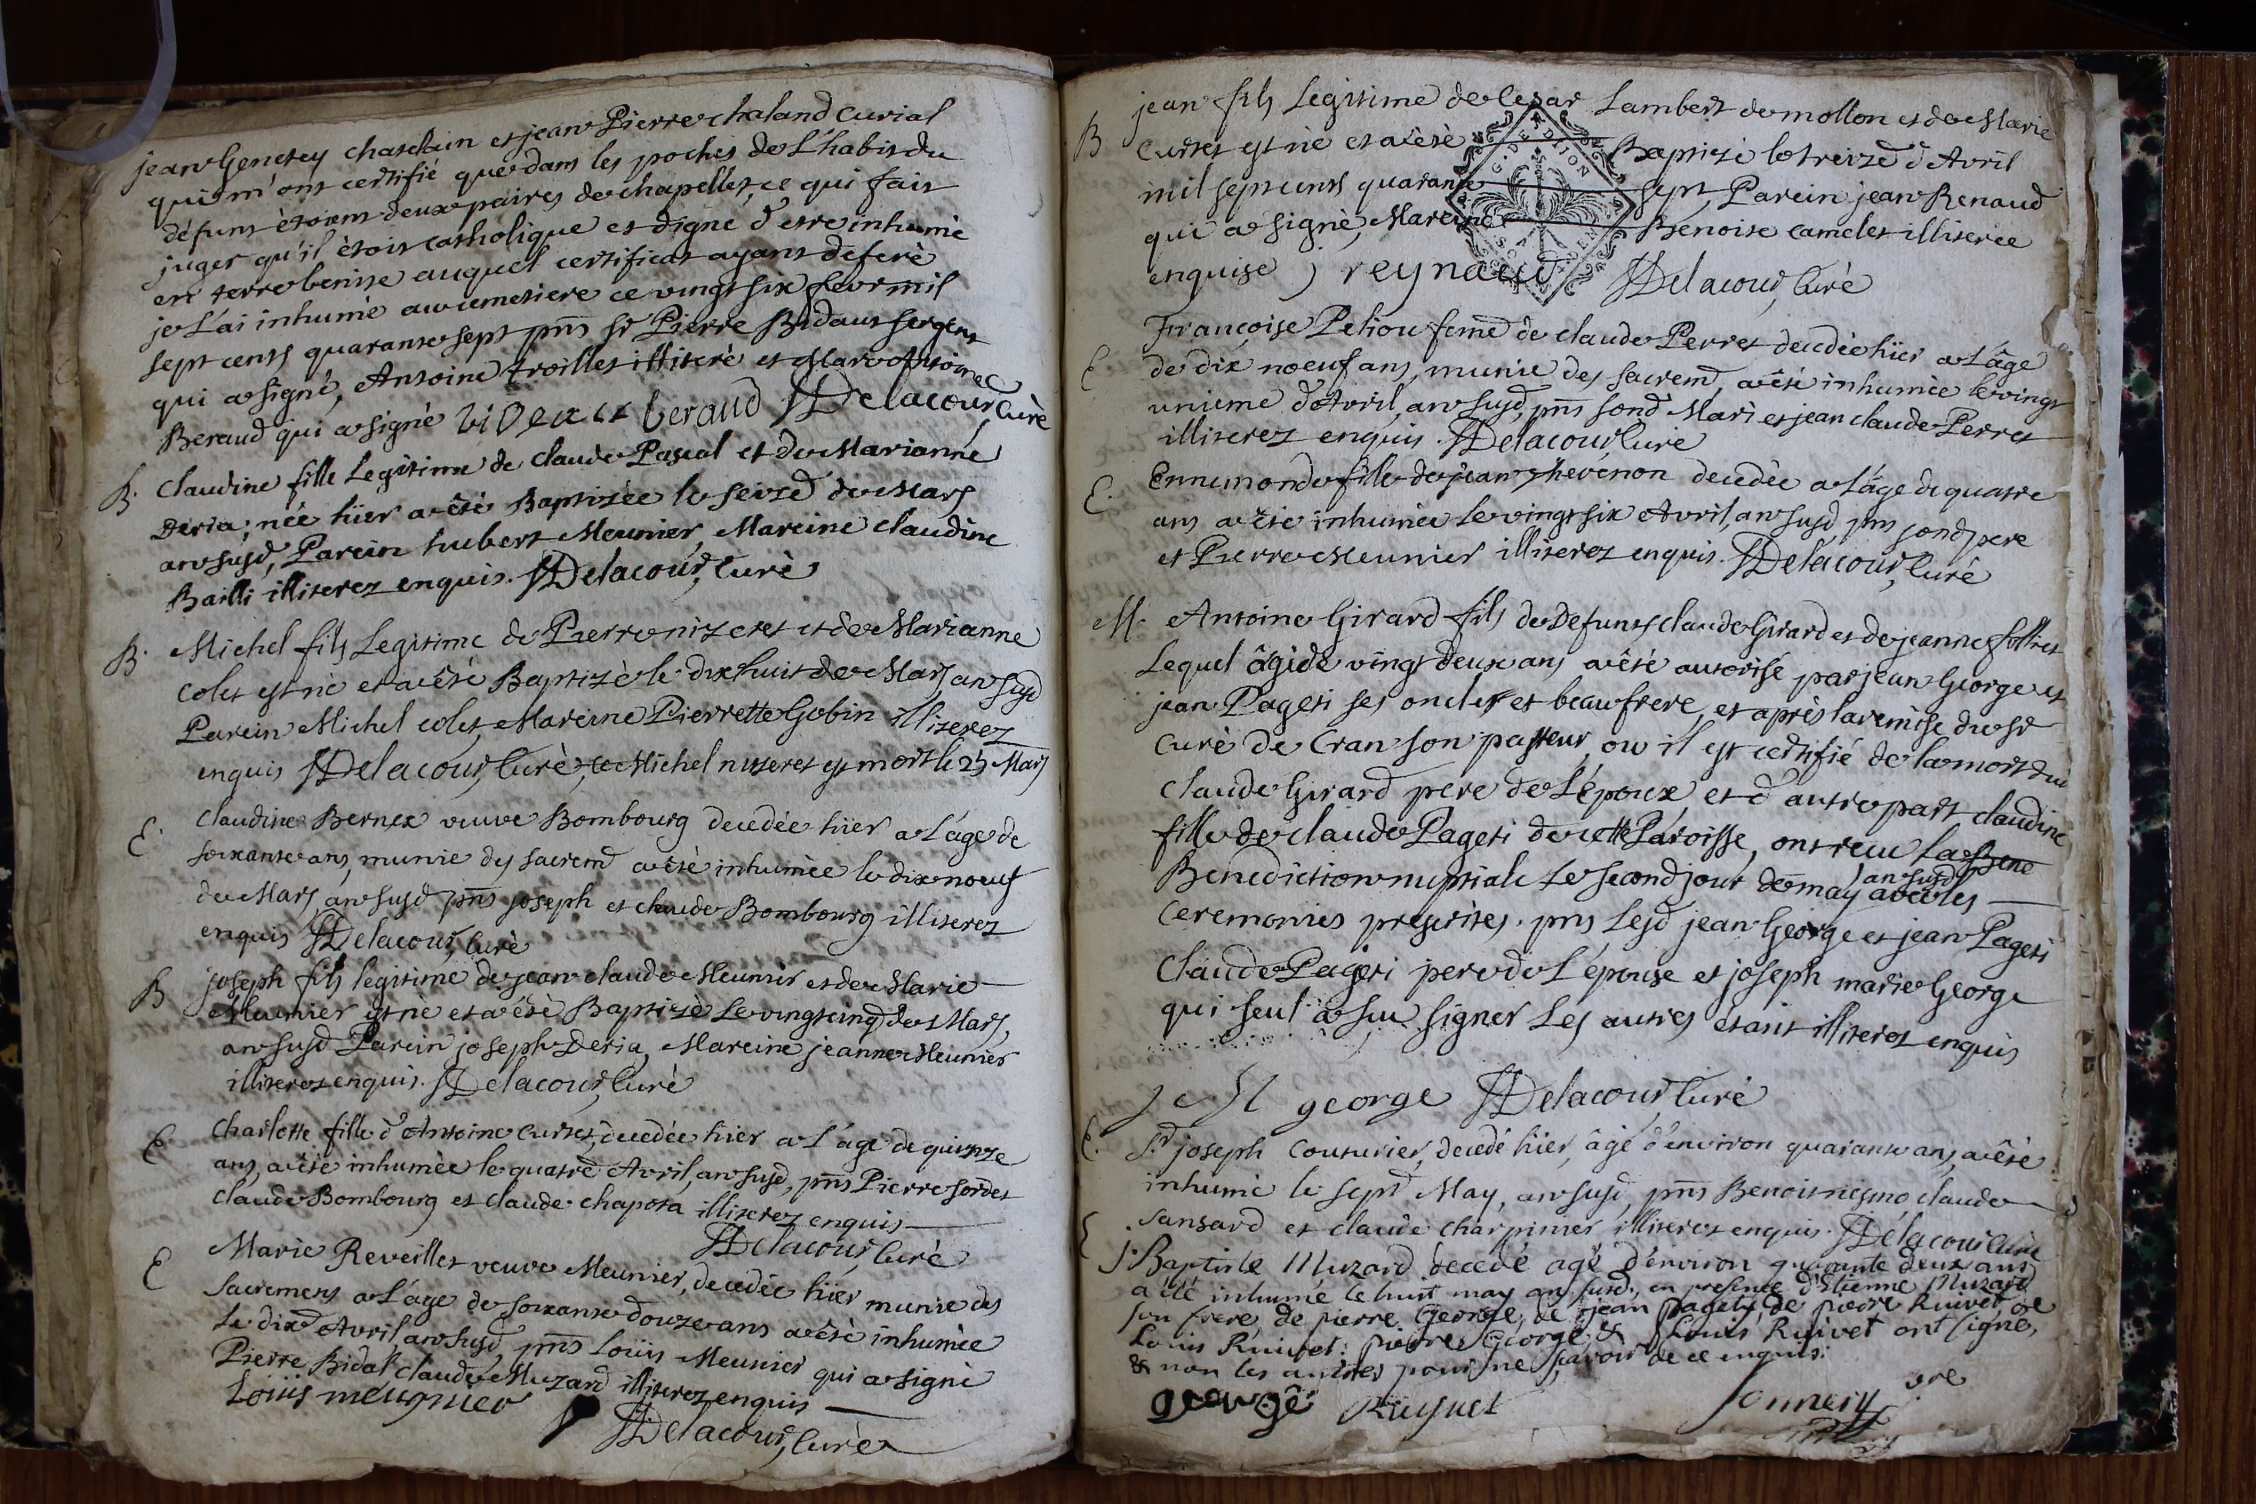 jean Genetey chastelain et jean Pierre chaland Curial
qui m'ont certifié que dans les poches de L'habit du
défunt étoient deux paires de chapellet, ce qui fait
juger qu'il étoit catholique et digne d'etre inhumé
en terre benite auquel certificat ayant deferé
je L'ai inhumé au cimetiere ce vingt six fevr mil
sept cents quarante sept pnts Sr Pierre Bidaut sergent
qui a signé, Antoine troillet illiteré et Marc Antoine
Beraud qui a signé bidaut beraud Delacour Curé
B. Claudine fille Legitime de Claude Pascal et de Marianne
Deria; née hïer a été Baptizée le seize de Mars
an susd, Parein hubert Meunier, Mareine Claudine
Bailli illiterez enquis. Delacour, Curé
B. Michel fils Legitime de Pierre nizeret et de Marianne
Colet est né et a été Baptizé le dix huit de Mars an susd
Parein Michel colet, Mareine Pierrette Gobin illiterez
enquis Delacour, Curé, ce Michel nizeret est mort le 25 Mars
E. Claudine Bernex veuve Bombourg decedée hïer a L'âge de
soixante ans, munie des sacremts a été inhumée le dix noeuf
de Mars an susd pnts joseph et claude Bombourg illiterez
enquis Delacour, Curé
B joseph fils legitime de jean claude Meunier et de Marie
Meunier est né et a été Baptizé le vingt cinq de Mars,
an susd Parein joseph Deria, Mareine jeanne Meunier
illiterez enquis. Delacour, Curé
E. Charlotte fille d'Antoine Curtet, decedée hïer a L'age de quinze
ans, a été inhumée le quatre Avril, an susd, pnts Pierre sordet
Claude Bombourg et Claude chapota illiterez enquis
Delacour, Curé
E Marie Reveillet veuve Meunier, decedée hïer munie des
sacremens a L'âge de soixante douze ans a été inhumée
Le dix Avril an susd pnts Loüis Meunier qui a signé
Pierre Bidat Claude Muzard illiterez enquis
Loüis meugnier
Delacour, Curé
B jean fils Legitime de Cesar Lambert de mollon et de Marie
Curtet est né et a été Baptizé le treize d'Avril
mil sept cents quarante sept, Parein jean Renaud
qui a signé, Mareine Benoite camelet illiterée
enquise j reynaud Delacour, Curé
G. DE DIJON
E Françoise Peliou feme de claude Perret decedée hïer a L'âge
de dix noeuf ans, munie des sacremts, a été inhumée le vingt
unieme d'Avril, an susd, pnts sond Mari et jean claude Perret
illiterez enquis. Delacour Curé
E. Ennemonde fille de jean Thevenon decedée a L'âge de quatre
ans a été inhumée le vingt six Avril, an susd pnts sond pere
et Pierre Meunier illiterez enquis. Delacour, Curé
M. Antoine Girard fils de Defunts claude Girard et de jeanne folliet
Lequel âgé de vingt deux ans a été autorisé par jean George et
jean Pageti ses oncles et beaufrere, et après la remise du Sr
Curé de Cran son pasteur, ou il est certifié de la mort du
Claude Girard pere de L'époux, et d'autre part claudine
fille de claude Pageti de cette Paroisse, ont reçu la Bene
Benediction nuptiale Le second jour de may an susd avec les
ceremonies prescrites. pnts Lesd jean George et jean Pageti
Claude Pageti pere de L'épouse et joseph marie George
qui seul a su signer Les autres étant illiterez enquis
J M george Delacour Curé
E. Sr joseph Couturier, decedé hïer, âgé d'environ quarante ans, a été
inhumé le sept May, an susd, pnts Benoit nesmo claude
sansard et claude charpinier, illiterez enquis. Delacour Curé
E J. Baptiste Muzard décedé agé d'environ quarante deux ans
a été inhumé le huit may an susd. en presence d'Etienne Muzard
son frere, de pierre George, de jean pagety de pierre Ruivet, de
Louis Ruivet: pierre George, & Louis Ruivet ont signé,
& non les autres pour ne sçavoir de ce enquis.
george Ruyuet Jonnery ptre